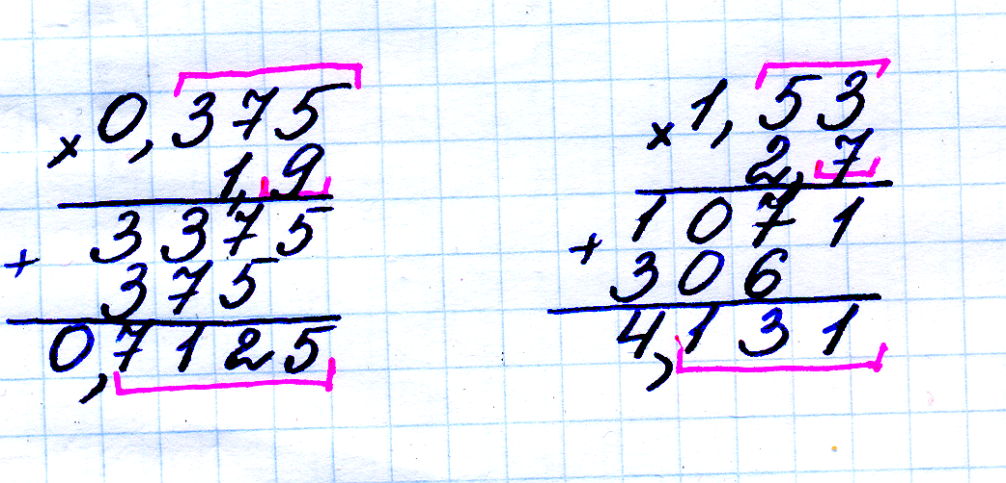 × 0,375
1,9
+ 3375
375
0,7125
× 1,53
2,7
+ 1071
306
4,131